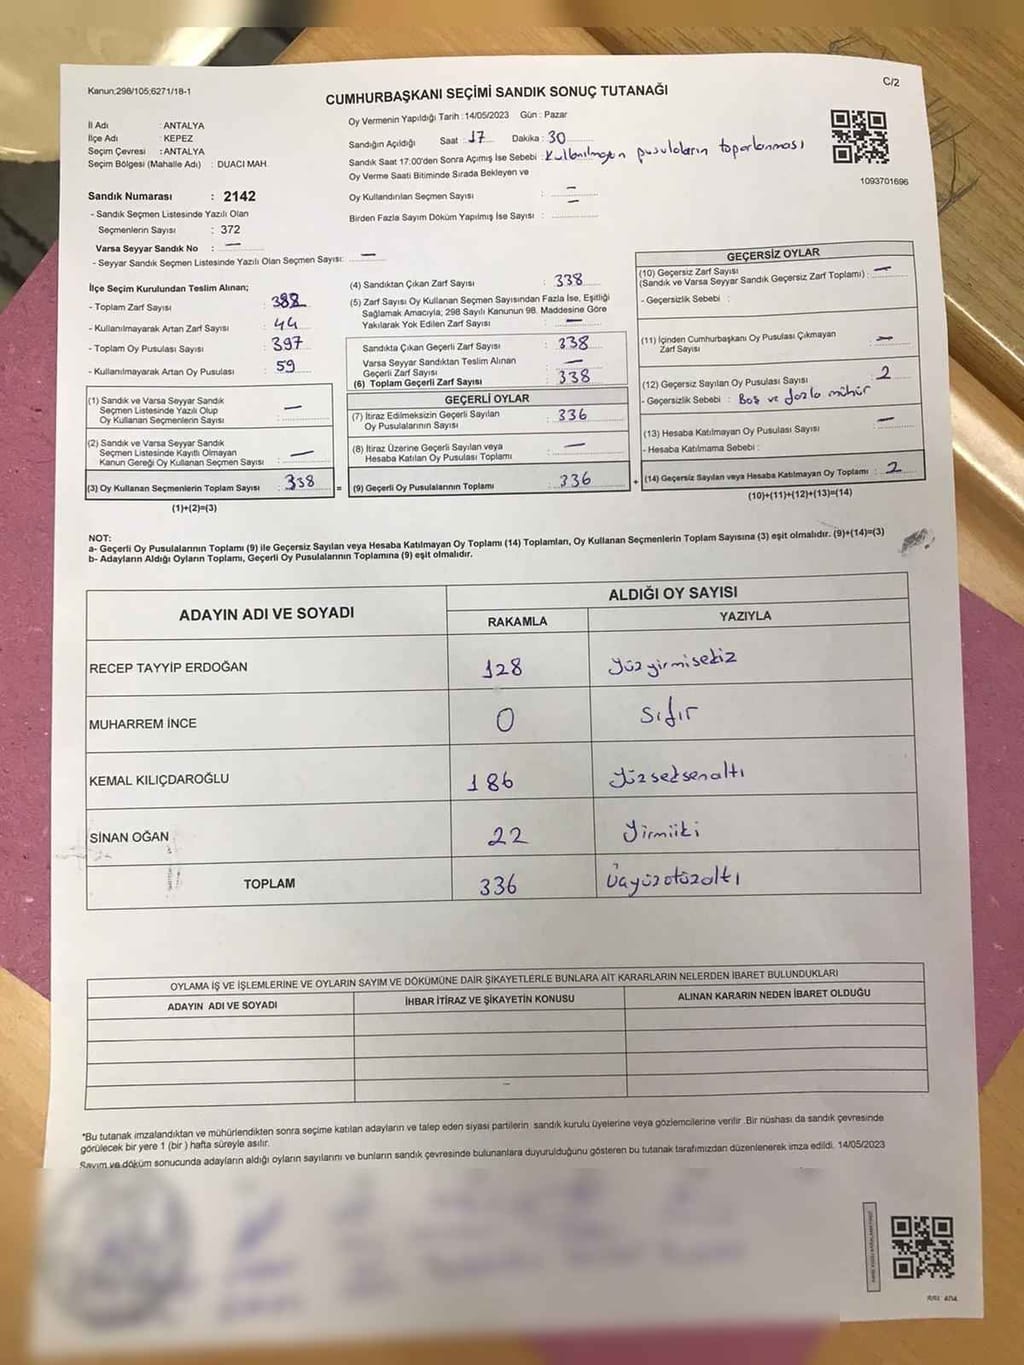 Kanun;298/105;6271/18-1
C/2
CUMHURBAŞKANI SEÇİMİ SANDIK SONUÇ TUTANAĞI
İl Adı : ANTALYA
İlçe Adı : KEPEZ
Seçim Çevresi : ANTALYA
Seçim Bölgesi (Mahalle Adı) : DUACI MAH.
Oy Vermenin Yapıldığı Tarih : 14/05/2023 Gün : Pazar
Sandığın Açıldığı Saat : 17 Dakika : 30
Sandık Saat 17.00'den Sonra Açımış İse Sebebi : Kullanılmayan pusuların toparlanması
Oy Verme Saati Bitiminde Sırada Bekleyen ve
Oy Kullandırılan Seçmen Sayısı : —
Birden Fazla Sayım Döküm Yapılmış İse Sayısı : —
1093701696
Sandık Numarası : 2142
- Sandık Seçmen Listesinde Yazılı Olan
Seçmenlerin Sayısı : 372
Varsa Seyyar Sandık No : —
- Seyyar Sandık Seçmen Listesinde Yazılı Olan Seçmen Sayısı: —
İlçe Seçim Kurulundan Teslim Alınan;
- Toplam Zarf Sayısı : 388
- Kullanılmayarak Artan Zarf Sayısı : 44
- Toplam Oy Pusulası Sayısı : 397
- Kullanılmayarak Artan Oy Pusulası : 59
(1) Sandık ve Varsa Seyyar Sandık
Seçmen Listesinde Yazılı Olup
Oy Kullanan Seçmenlerin Sayısı : —
(2) Sandık ve Varsa Seyyar Sandık
Seçmen Listesinde Kayıtlı Olmayan
Kanun Gereği Oy Kullanan Seçmen Sayısı : —
(3) Oy Kullanan Seçmenlerin Toplam Sayısı : 338
(1)+(2)=(3)
(4) Sandıktan Çıkan Zarf Sayısı : 338
(5) Zarf Sayısı Oy Kullanan Seçmen Sayısından Fazla İse, Eşitliği
Sağlamak Amacıyla; 298 Sayılı Kanunun 98. Maddesine Göre
Yakılarak Yok Edilen Zarf Sayısı : —
Sandıkta Çıkan Geçerli Zarf Sayısı : 338
Varsa Seyyar Sandıktan Teslim Alınan
Geçerli Zarf Sayısı : —
(6) Toplam Geçerli Zarf Sayısı : 338
GEÇERLİ OYLAR
(7) İtiraz Edilmeksizin Geçerli Sayılan
Oy Pusulalarının Sayısı : 336
(8) İtiraz Üzerine Geçerli Sayılan veya
Hesaba Katılan Oy Pusulası Toplamı : —
= (9) Geçerli Oy Pusulalarının Toplamı : 336
GEÇERSİZ OYLAR
(10) Geçersiz Zarf Sayısı
(Sandık ve Varsa Seyyar Sandık Geçersiz Zarf Toplamı) : —
- Geçersizlik Sebebi :
(11) İçinden Cumhurbaşkanı Oy Pusulası Çıkmayan
Zarf Sayısı : —
(12) Geçersiz Sayılan Oy Pusulası Sayısı : 2
- Geçersizlik Sebebi : Boş ve fazla mühür
(13) Hesaba Katılmayan Oy Pusulası Sayısı : —
- Hesaba Katılmama Sebebi :
+ (14) Geçersiz Sayılan veya Hesaba Katılmayan Oy Toplamı : 2
(10)+(11)+(12)+(13)=(14)
NOT:
a- Geçerli Oy Pusulalarının Toplamı (9) ile Geçersiz Sayılan veya Hesaba Katılmayan Oy Toplamı (14) Toplamları, Oy Kullanan Seçmenlerin Toplam Sayısına (3) eşit olmalıdır. (9)+(14)=(3)
b- Adayların Aldığı Oyların Toplamı, Geçerli Oy Pusulalarının Toplamına (9) eşit olmalıdır.
ADAYIN ADI VE SOYADI
ALDIĞI OY SAYISI
RAKAMLA YAZIYLA
RECEP TAYYİP ERDOĞAN 128 Yüzyirmisekiz
MUHARREM İNCE 0 Sıfır
KEMAL KILIÇDAROĞLU 186 Yüzseksenaltı
SİNAN OĞAN 22 Yirmiiki
TOPLAM 336 Üçyüzotuzaltı
OYLAMA İŞ VE İŞLEMLERİNE VE OYLARIN SAYIM VE DÖKÜMÜNE DAİR ŞİKAYETLERLE BUNLARA AİT KARARLARIN NELERDEN İBARET BULUNDUKLARI
ADAYIN ADI VE SOYADI İHBAR İTİRAZ VE ŞİKAYETİN KONUSU ALINAN KARARIN NEDEN İBARET OLDUĞU
*Bu tutanak imzalandıktan ve mühürlendikten sonra seçime katılan adayların ve talep eden siyasi partilerin sandık kurulu üyelerine veya gözlemcilerine verilir. Bir nüshası da sandık çevresinde
görülecek bir yere 1 (bir ) hafta süreyle asılır.
Sayım ve döküm sonucunda adayların aldığı oyların sayılarını ve bunların sandık çevresinde bulunanlara duyurulduğunu gösteren bu tutanak tarafımızdan düzenlenerek imza edildi. 14/05/2023